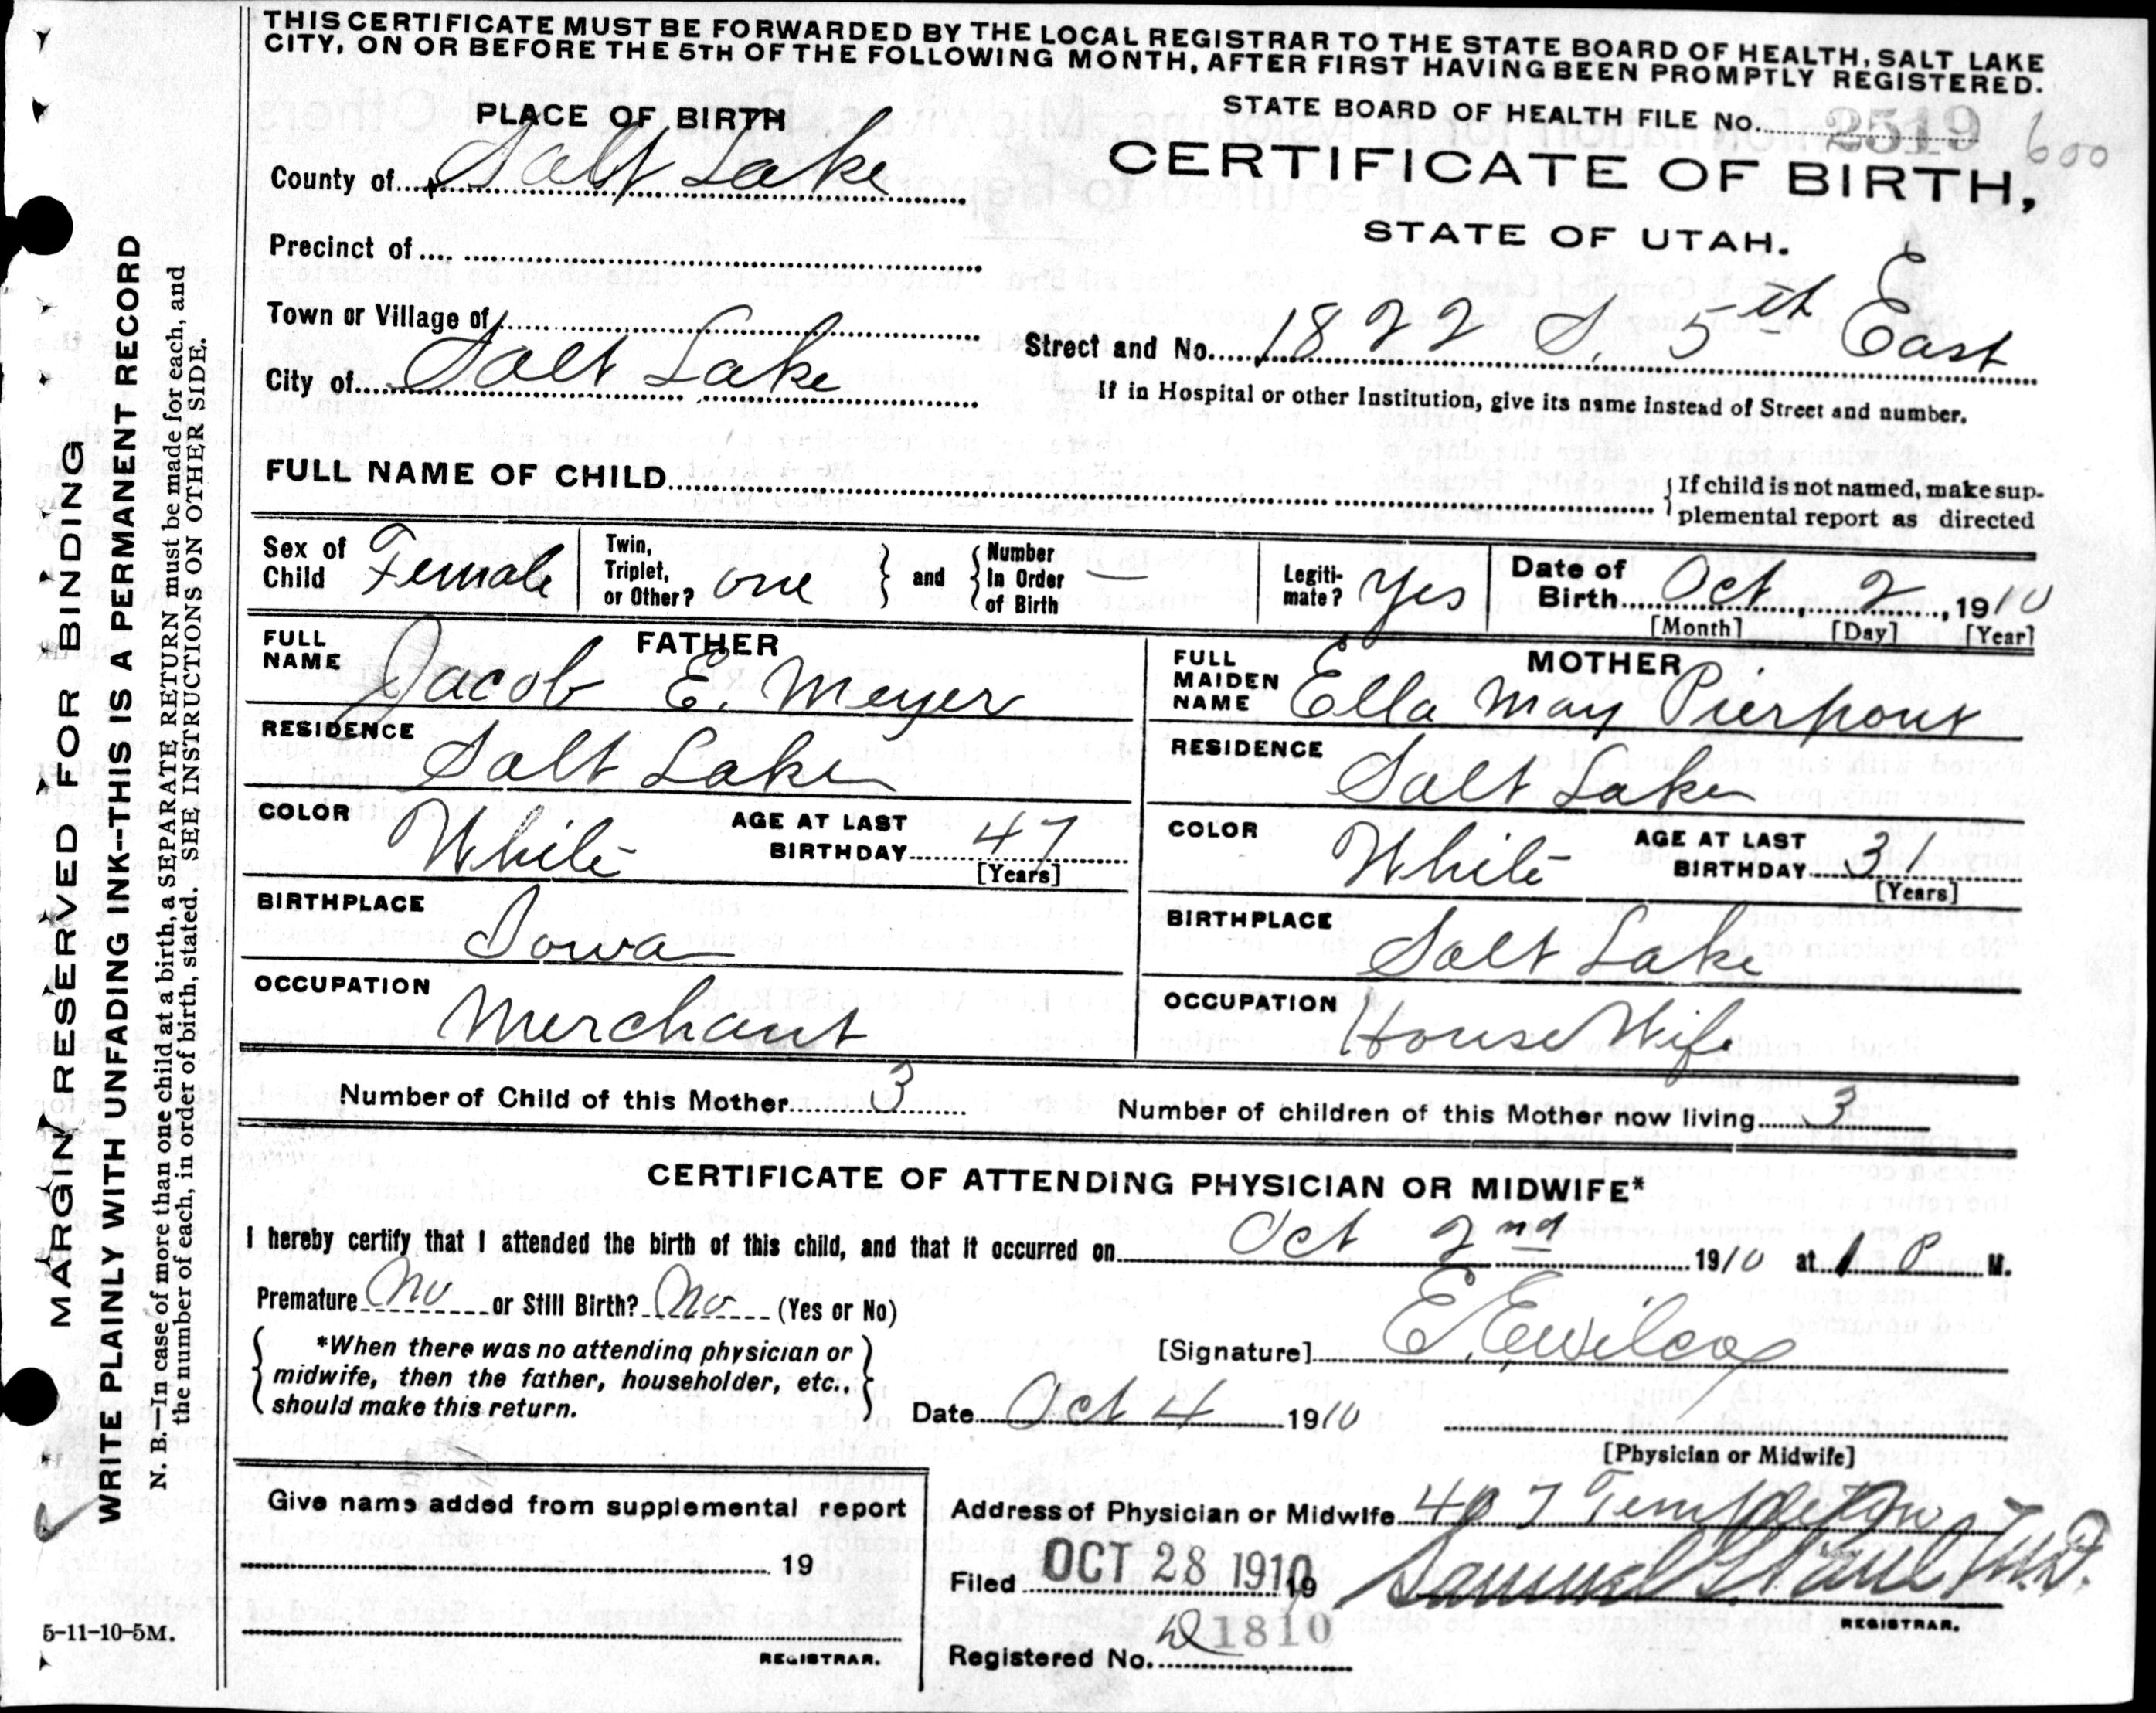 THIS CERTIFICATE MUST BE FORWARDED BY THE LOCAL REGISTRAR TO THE STATE BOARD OF HEALTH, SALT LAKE
CITY, ON OR BEFORE THE 5TH OF THE FOLLOWING MONTH, AFTER FIRST HAVING BEEN PROMPTLY REGISTERED.
PLACE OF BIRTH
STATE BOARD OF HEALTH FILE No. 2519 600
County of Salt Lake
CERTIFICATE OF BIRTH,
STATE OF UTAH.
Precinct of
Town or Village of
Street and No. 1822 S. 5th East
City of Salt Lake
If in Hospital or other Institution, give its name instead of Street and number.
FULL NAME OF CHILD
If child is not named, make sup-
plemental report as directed
Sex of Child Female
Twin, Triplet, or Other? one and Number In Order of Birth —
Legiti-mate? Yes
Date of Birth Oct, 2, 1910
[Month] [Day] [Year]
FATHER
FULL NAME Jacob E. Meyer
RESIDENCE
Salt Lake
COLOR White AGE AT LAST BIRTHDAY 47
[Years]
BIRTHPLACE
Iowa
OCCUPATION
Merchant
MOTHER
FULL MAIDEN NAME Ella May Pierpont
RESIDENCE
Salt Lake
COLOR White AGE AT LAST BIRTHDAY 31
[Years]
BIRTHPLACE
Salt Lake
OCCUPATION
House Wife
Number of Child of this Mother 3
Number of children of this Mother now living 3
CERTIFICATE OF ATTENDING PHYSICIAN OR MIDWIFE*
I hereby certify that I attended the birth of this child, and that it occurred on Oct 2nd 1910 at 1 P M.
Premature No or Still Birth? No (Yes or No)
*When there was no attending physician or
midwife, then the father, householder, etc.,
should make this return.
[Signature] E. E Wilcox
Date Oct 4 1910
[Physician or Midwife]
Give name added from supplemental report
19
REGISTRAR.
Address of Physician or Midwife 407 Templeton
Filed OCT 28 1910 19
Samuel G. Paul M.D.
REGISTRAR.
Registered No. 1810
MARGIN RESERVED FOR BINDING
WRITE PLAINLY WITH UNFADING INK--THIS IS A PERMANENT RECORD
N. B.—In case of more than one child at a birth, a SEPARATE RETURN must be made for each, and
the number of each, in order of birth, stated. SEE INSTRUCTIONS ON OTHER SIDE.
5-11-10-5M.